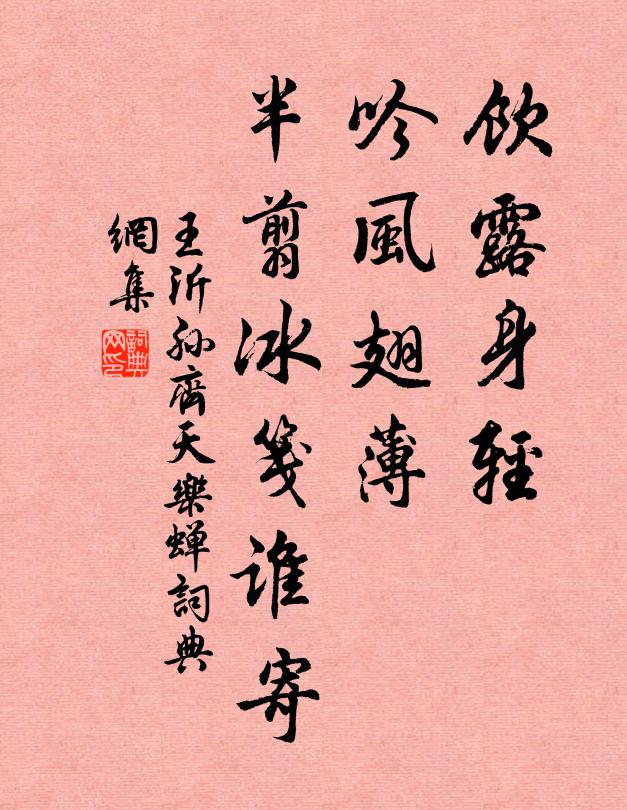 飲露身輕
吟風翅薄
半翦冰箋誰寄
王沂孙齊天樂蟬詞典
網集
詞典
网印